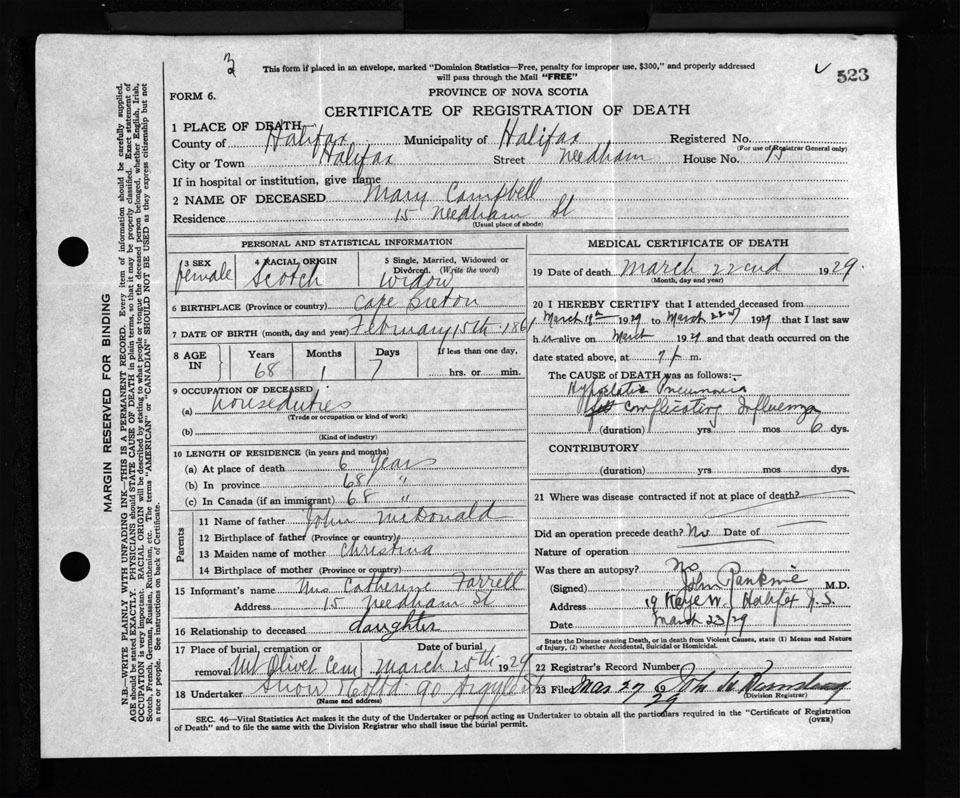 3
This form if placed in an envelope, marked "Dominion Statistics—Free, penalty for improper use, $300," and properly addressed
will pass through the Mail "FREE"
523
FORM 6.
PROVINCE OF NOVA SCOTIA
CERTIFICATE OF REGISTRATION OF DEATH
1 PLACE OF DEATH
County of Halifax Municipality of Halifax Registered No.
(For use of Registrar General only)
City or Town Halifax Street Needham House No. 15
If in hospital or institution, give name
2 NAME OF DECEASED Mary Campbell
Residence 15 Needham St
(Usual place of abode)
PERSONAL AND STATISTICAL INFORMATION
3 SEX female
4 RACIAL ORIGIN Scotch
5 Single, Married, Widowed or Divorced. (Write the word) Widow
6 BIRTHPLACE (Province or country) Cape Breton
7 DATE OF BIRTH (month, day and year) February 15th 1861
8 AGE IN Years 68 Months 1 Days 7 If less than one day, hrs. or min.
9 OCCUPATION OF DECEASED
(a) houseduties
(Trade or occupation or kind of work)
(b)
(Kind of industry)
10 LENGTH OF RESIDENCE (in years and months)
(a) At place of death 6 years
(b) In province 68 "
(c) In Canada (if an immigrant) 68 "
Parents
11 Name of father John McDonald
12 Birthplace of father (Province or country)
13 Maiden name of mother Christina
14 Birthplace of mother (Province or country)
15 Informant's name Mrs Catherine Farrell
Address 15 Needham St
16 Relationship to deceased daughter
17 Place of burial, cremation or removal Mt Olivet Cem Date of burial March 25th 1929
18 Undertaker Snow &Co Ltd 90 Argyle St
(Name and address)
MEDICAL CERTIFICATE OF DEATH
19 Date of death March 22nd 1929.
(Month, day and year)
20 I HEREBY CERTIFY that I attended deceased from
March 1929 to March 22nd 1929 that I last saw
her alive on March 1929 and that death occurred on the
date stated above, at 7 P m.
The CAUSE of DEATH was as follows:—
Hypostatic Pneumonia
complicating Influenza
(duration) yrs mos 6 dys.
CONTRIBUTORY
(duration) yrs. mos. dys.
21 Where was disease contracted if not at place of death?
Did an operation precede death? No Date of
Nature of operation
Was there an autopsy? No
(Signed) John Rankine M.D.
Address 19 Kaye W. Halifax N.S.
Date March 23/29
State the Disease causing Death, or in death from Violent Causes, state (1) Means and Nature
of Injury, (2) whether Accidental, Suicidal or Homicidal.
22 Registrar's Record Number
23 Filed Mar 27 1929 John
(Division Registrar)
SEC. 46—Vital Statistics Act makes it the duty of the Undertaker or person acting as Undertaker to obtain all the particulars required in the "Certificate of Registration
of Death" and to file the same with the Division Registrar who shall issue the burial permit.
(OVER)
MARGIN RESERVED FOR BINDING
N.B.—WRITE PLAINLY WITH UNFADING INK—THIS IS A PERMANENT RECORD. Every item of information should be carefully supplied.
AGE should be stated EXACTLY. PHYSICIANS should STATE CAUSE OF DEATH in plain terms, so that it may be properly classified. Exact statement of
OCCUPATION is very important. RACIAL ORIGIN will be described by stating to what people or tongue the deceased person belonged, whether English, Irish,
Scotch, French, German, Russian, Ruthenian, etc. The terms "AMERICAN" or "CANADIAN" SHOULD NOT BE USED as they express citizenship but not
a race or people. See instructions on back of Certificate.